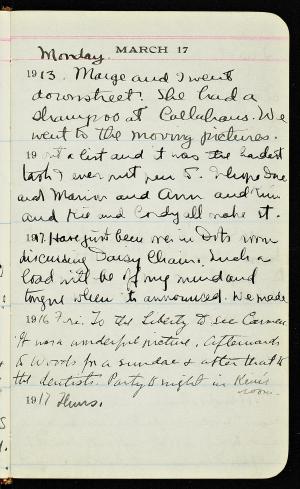 Monday.
MARCH 17
1913. Marge and I went
downstreet. She had a
shampoo at Callahans. We
went to the moving pictures.
19 out a list and it was the hardest
task I ever put pen to. I hope Dae
and Marion and Ann and Kim
and Kie and Cordy all make it.
1917. Have just been over in Dots room
discussing Daisy Chain. Such a
load will be off my mind and
tongue when its announced. We made
1916 Fri. To the Liberty to see Carmen
It was a wonderful picture. Afterwards
to Woods for a sundae & after that to
the dentists. Party to night in Kim's
room
1917 Thurs.